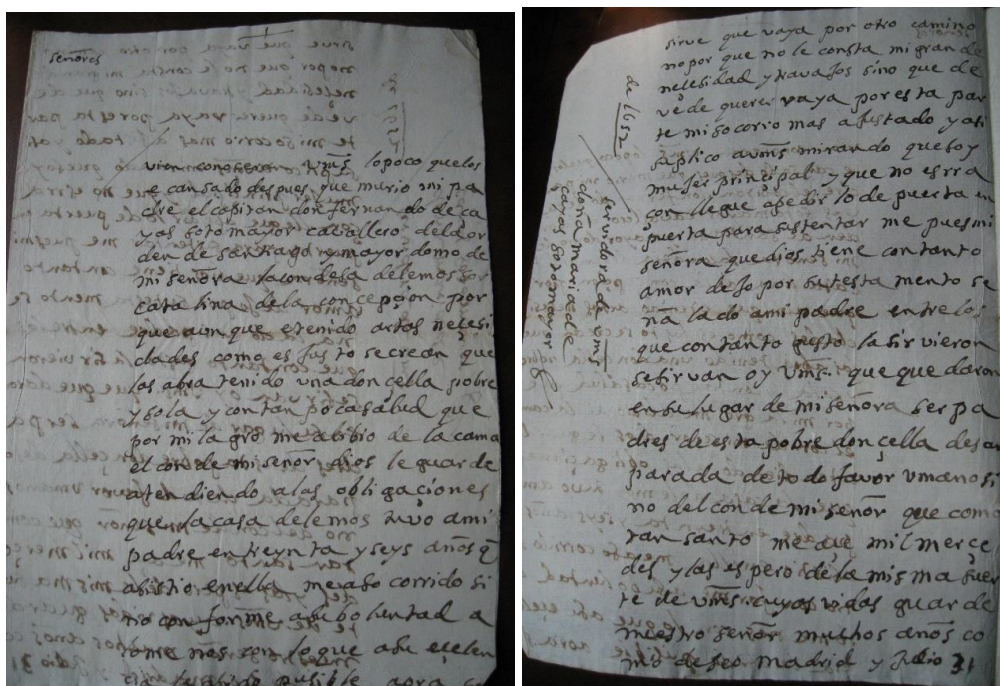 señores
vien conoseran Vms lo poco que los
e cansado despues que murio mi pa
dre el capitan don fernando de ca
yas sotomayor cavallero del or
den de santiago mayor domo de
mi señora la condesa de lemos sor
catalina de la concepçion por
que aun que e tenido artas nesesi
dades como es justo se crean que
las abra tenido una donçella pobre
y sola y con tan poca salud que
por milagro me a bibio de la cama
el conde mi señor dios le guarde
atendiendo a las obligaçiones
que la casa de lemos tuvo a mi
padre en treynta y seys años q
asistio en ella me a so corrido si
no conforme a su boluntad a
lo menos con lo que a su eselen
sirve que vaya por otro camino
no por que no le consta mi gran de
nesesidad y travajos sino que de
ve de querer vaya por esta par
te mi socorro mas ajustado y asi
suplico a vms mirando que soy
mujer principal y que no es rra
çon llegue a pedirlo de puerta en
puerta para sustentar me pues mi
señora que dios tiene con tanto
amor dejo por su testamento se
ña lado a mi padre entre los
que con tanto gusto la sirvieron
se sirvan oy vms. que quedaron
en su lugar de mi señora ser pa
dres de esta pobre donçella desan
parada de todo favor umano si
no del conde mi señor que como
tan santo me açe mil merce
des y las espero de la misma fuen
te de vms cuyas vidas guarde
nuestro señor muchos años co
mo deseo madrid y Julio 31
de 1652
servidora de vms
doña maria de
cayas sotomayor